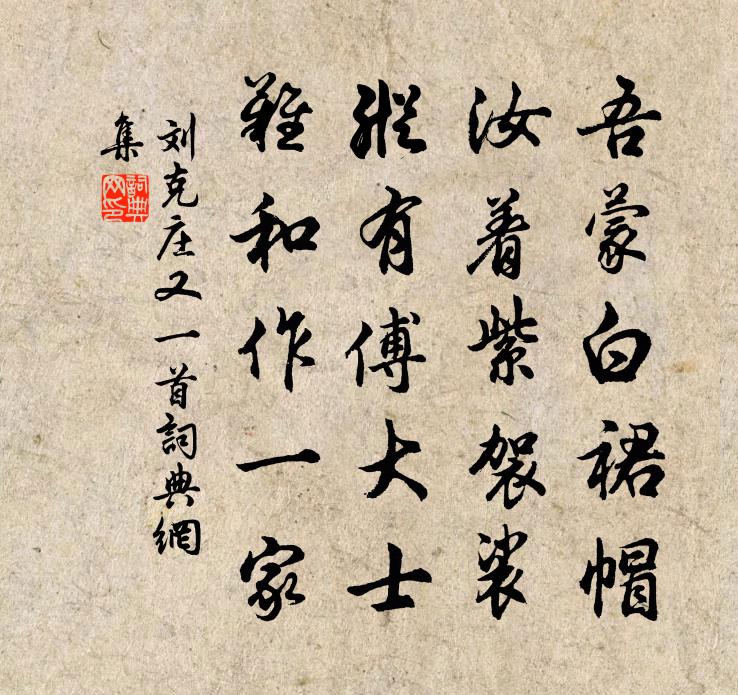 吾蒙白裙帽
汝着紫袈裟
縱有傅大士
難和作一家
刘克庄又一首詞典網
集
詞典
网印